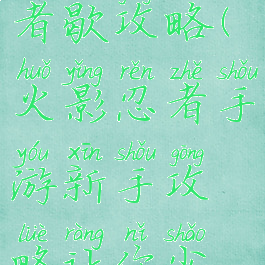 者歇攻略(
huǒ yǐng rěn zhě shǒu
火影忍者手
yóu xīn shǒu gōng
游新手攻
lüè ràng nǐ shǎo
略让你少